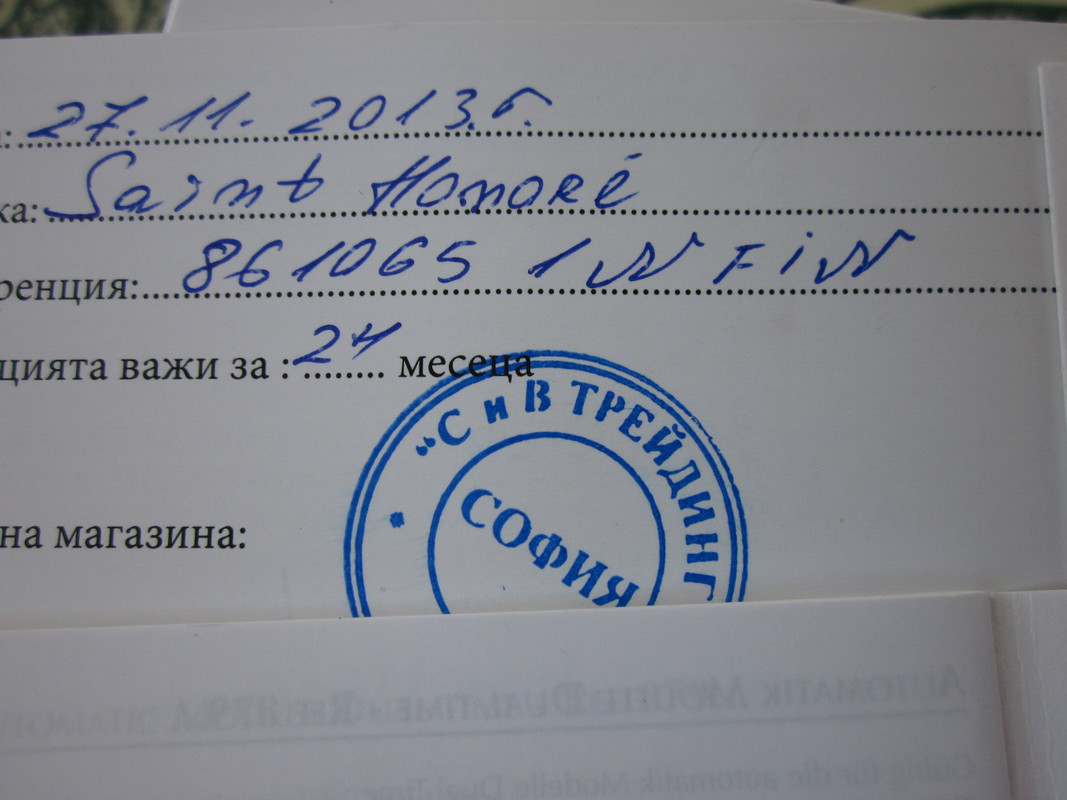 27.11.2013.г.
ка: Saint Honoré
ренция: 861065 1 NFiN
цията важи за : 24 месеца
"С и В ТРЕЙДИНГ
СОФИЯ
на магазина: